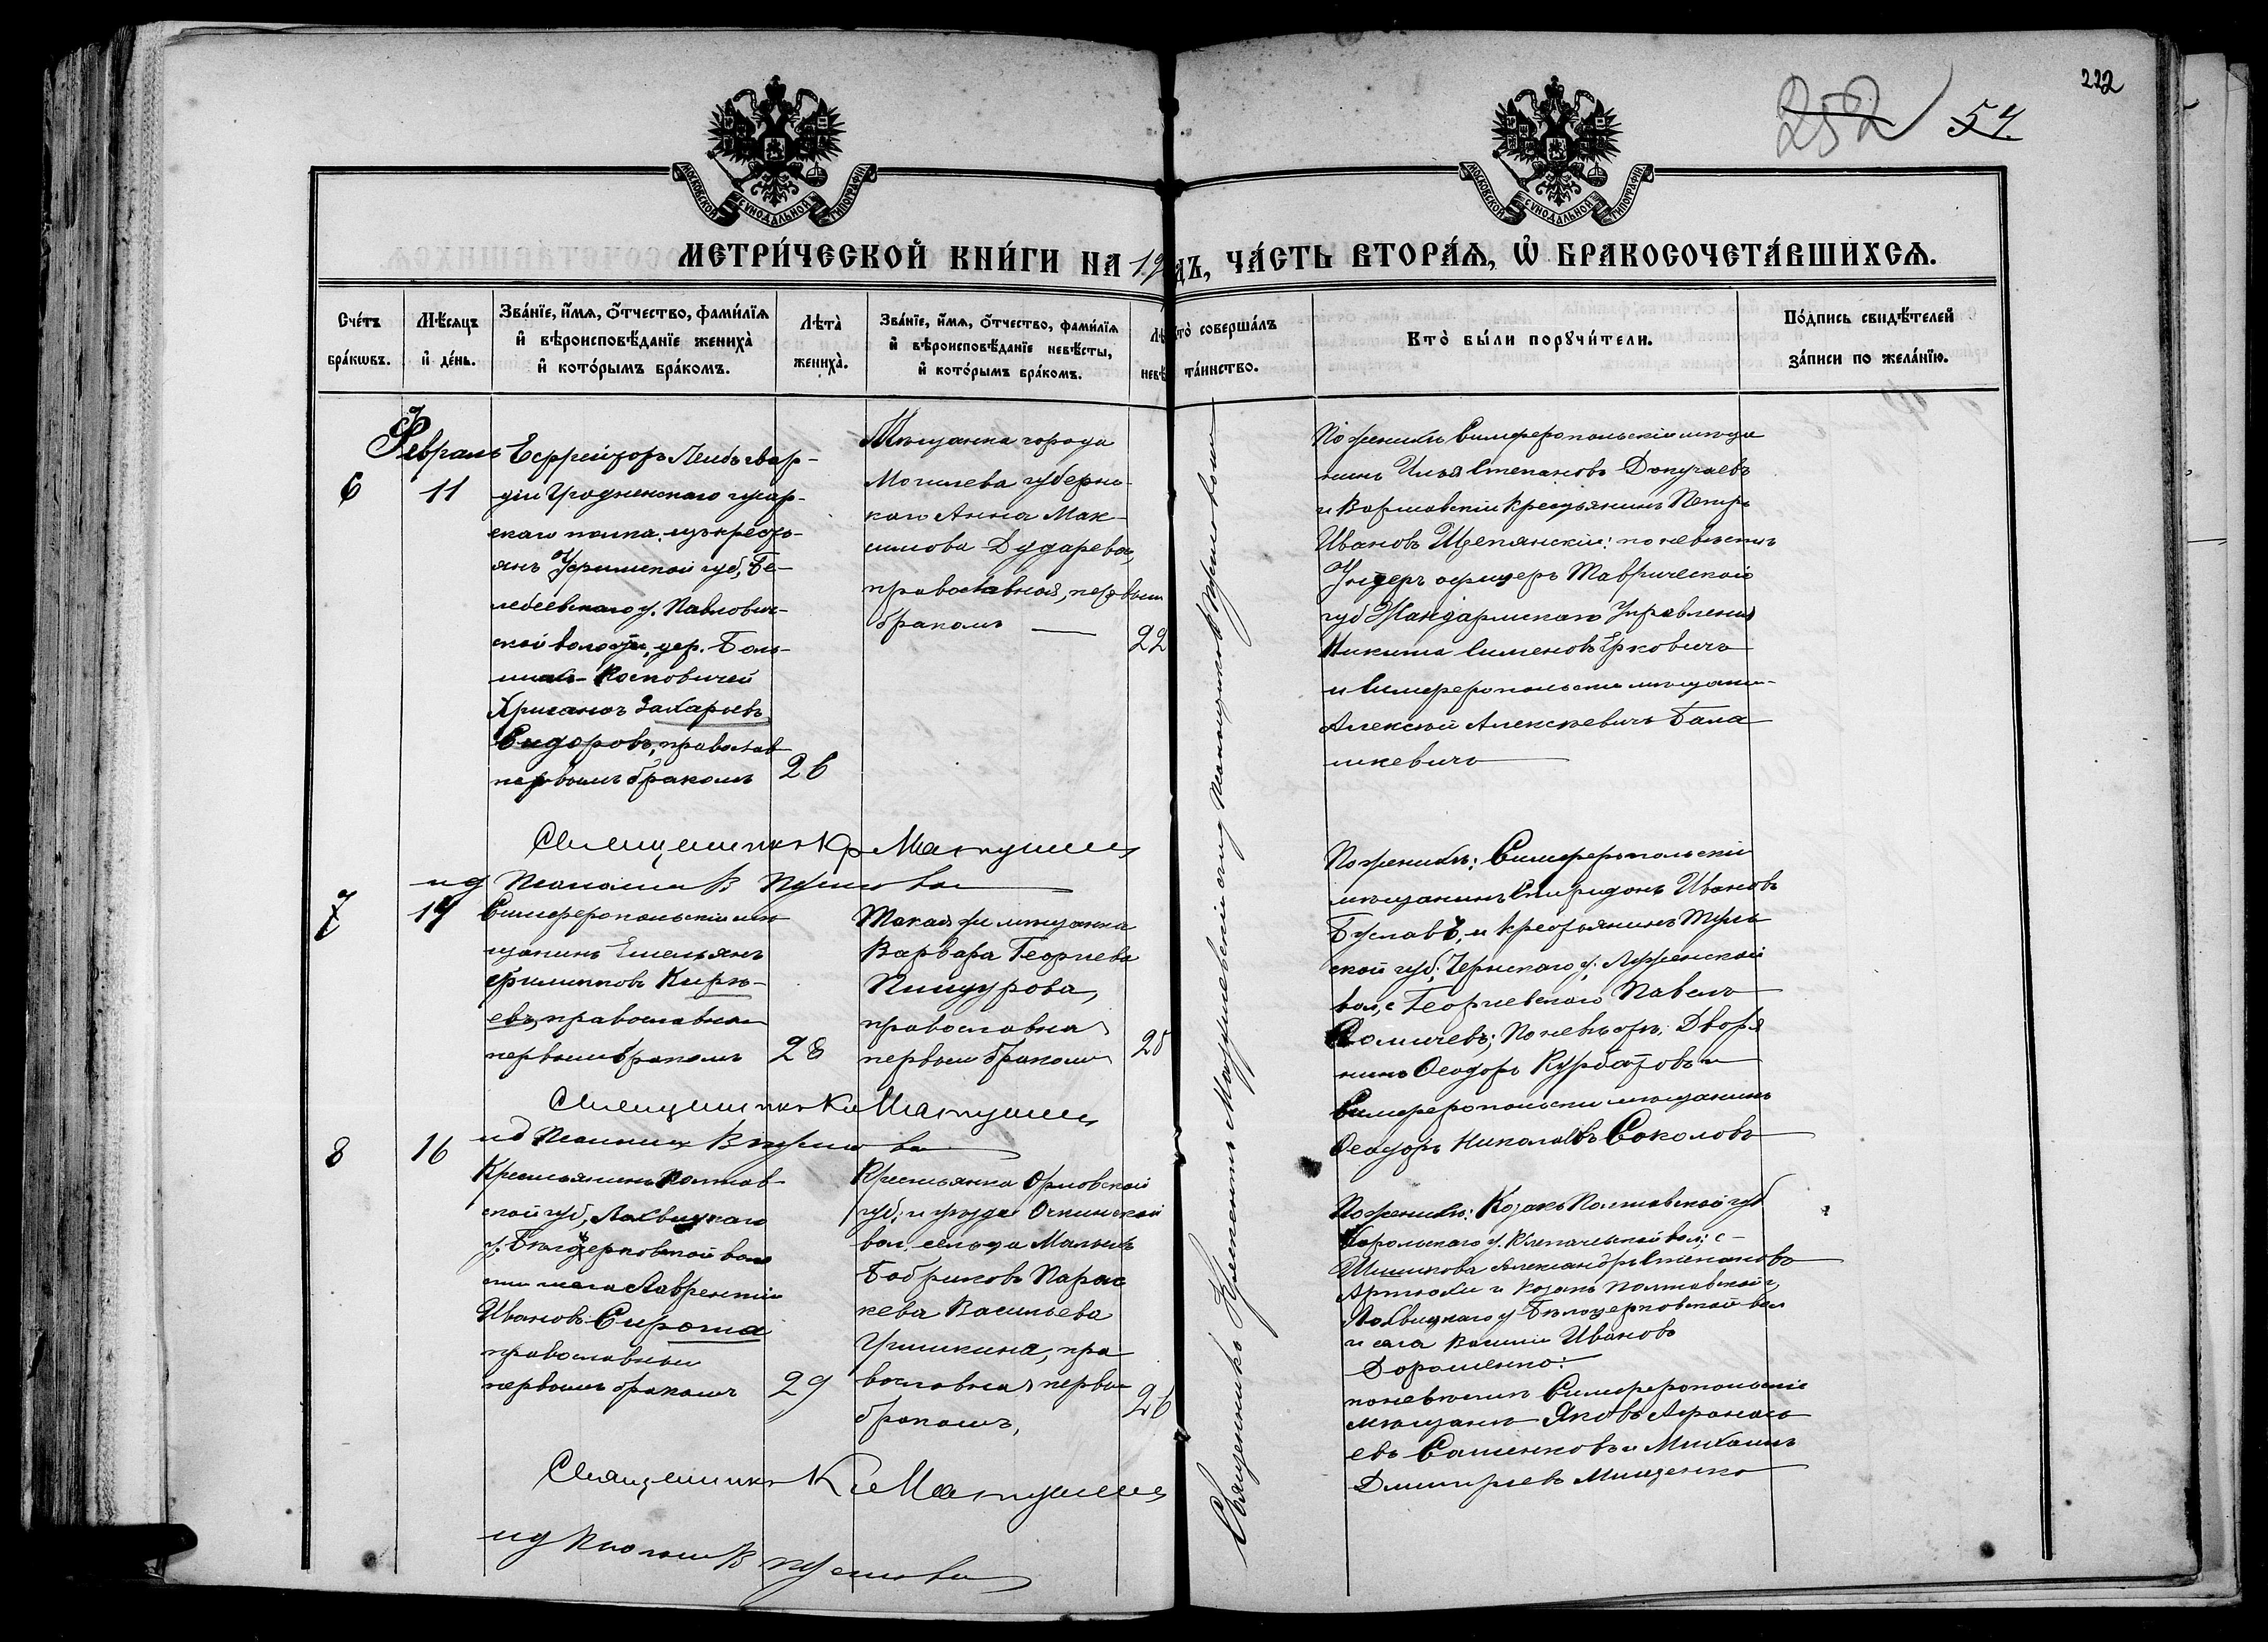 222
252 54.
МОСКОВСКОЙ СѴНОДАЛЬНОЙ ТИПОГРАФІИ
МОСКОВСКОЙ СѴНОДАЛЬНОЙ ТИПОГРАФІИ
МЕТРИ́ЧЕСКОЙ КНИ́ГИ НА 19
ДЪ, ЧА́СТЬ ВТОРА́Я, Ѡ҆ БРАКОСОЧЕТА́ВШИХСЯ.
Сче́тъ бра́кѡвъ.
Мѣ́сяцъ и҆ де́нь.
Зва́нїе, и҆́мя, ѻ҆́тчество, фами́лїя
и҆ вѣроисповѣ́данїе жениха̀
и҆ кото́рымъ бра́комъ.
Лѣта̀ жениха̀.
Зва́нїе, и҆́мя, ѻ҆́тчество, фами́лїя
и҆ вѣроисповѣ́данїе невѣ́сты,
и҆ кото́рымъ бра́комъ.
Лѣ невѣ
кто̀ соверша́лъ та́инство.
Кто̀ бы́ли порꙋчи́тели.
По́дпись свидѣ́телей
за́писи по жела́нїю.
Февраль
6
11
Ефрейторъ Лейбъ гвар-
діи Гродненскаго гусар-
скаго полка, изъ кресть-
янъ Уфимской губ., Бе-
лебеевскаго у. Павлович-
ской волости, дер. Боль-
Хрисанфъ Захарьевъ
Сидоровъ, православ
первымъ бракомъ
26
Мѣщанка города
Могилева губернс-
каго Анна Мак-
симова Дударева,
православная, первымъ
бракомъ
22
По женихѣ: Симферопольскій мѣща
нинъ Илья Степановъ Докучаевъ
и Варшавскій крестьянинъ Петръ
Ивановъ Щепянскій: по невѣстѣ
Унтеръ офицеръ Таврическаго
губ Жандармскаго Управленія
Никита Сименовъ
и Симферопольскій мѣщани-
Алексѣй Алексѣевичъ Бала
шкевичъ
Священникъ Матушев
ид Псаломщ В
7
14
Симферопольскій мѣ
щанинъ Емельянъ
Филипповъ Кирѣ-
евъ, православный
первымъ бракомъ
28
Такая же мѣщанка
Варвара Георгіева
Пищурова,
православная
первымъ бракомъ
По женихѣ: Симферопольскій
мѣщанинъ Спиридонъ Ивановъ
Буславъ, и крестьянинъ Туль
ской губ., Чернскаго у.
вол, с Георгіевскаго Павелъ
по невѣстѣ: Дворя
нинъ Ѳеодоръ Курбатовъ и
Симферопольскій мѣщанинъ
Ѳеодоръ Николаевъ Соколовъ
Священникъ Матушев
ид Псаломщ В
8
16
Крестьянинъ Полтав-
ской губ., Лохвицкаго
у. Бѣлоцерковской воло
сти села Лаврентій
Ивановъ Сирота
православный
первымъ бракомъ
29
Крестьянка Орловской
губ. и уѣзда
вол. сельца Малыхъ
Бобриковъ Парас
кева Васильева
Гришкина, пра
вославная первы
бракомъ,
26
По женихѣ: Козакъ Полтавской губ
Хорольскаго у. вол; с-
Шишкова Александръ Степановъ
и козакъ Полтавской г
Лохвицкаго у Бѣлоцерковской вол
и села Василій Ивановъ
Дорошенко:
по невѣстѣ Симферопольскіе
мѣщане Яковъ Афанась
евъ Сашенковъ и Михаилъ
Дмитріевъ Мищенко
Священникъ Матушев
ид Псаломщ В
Священникъ